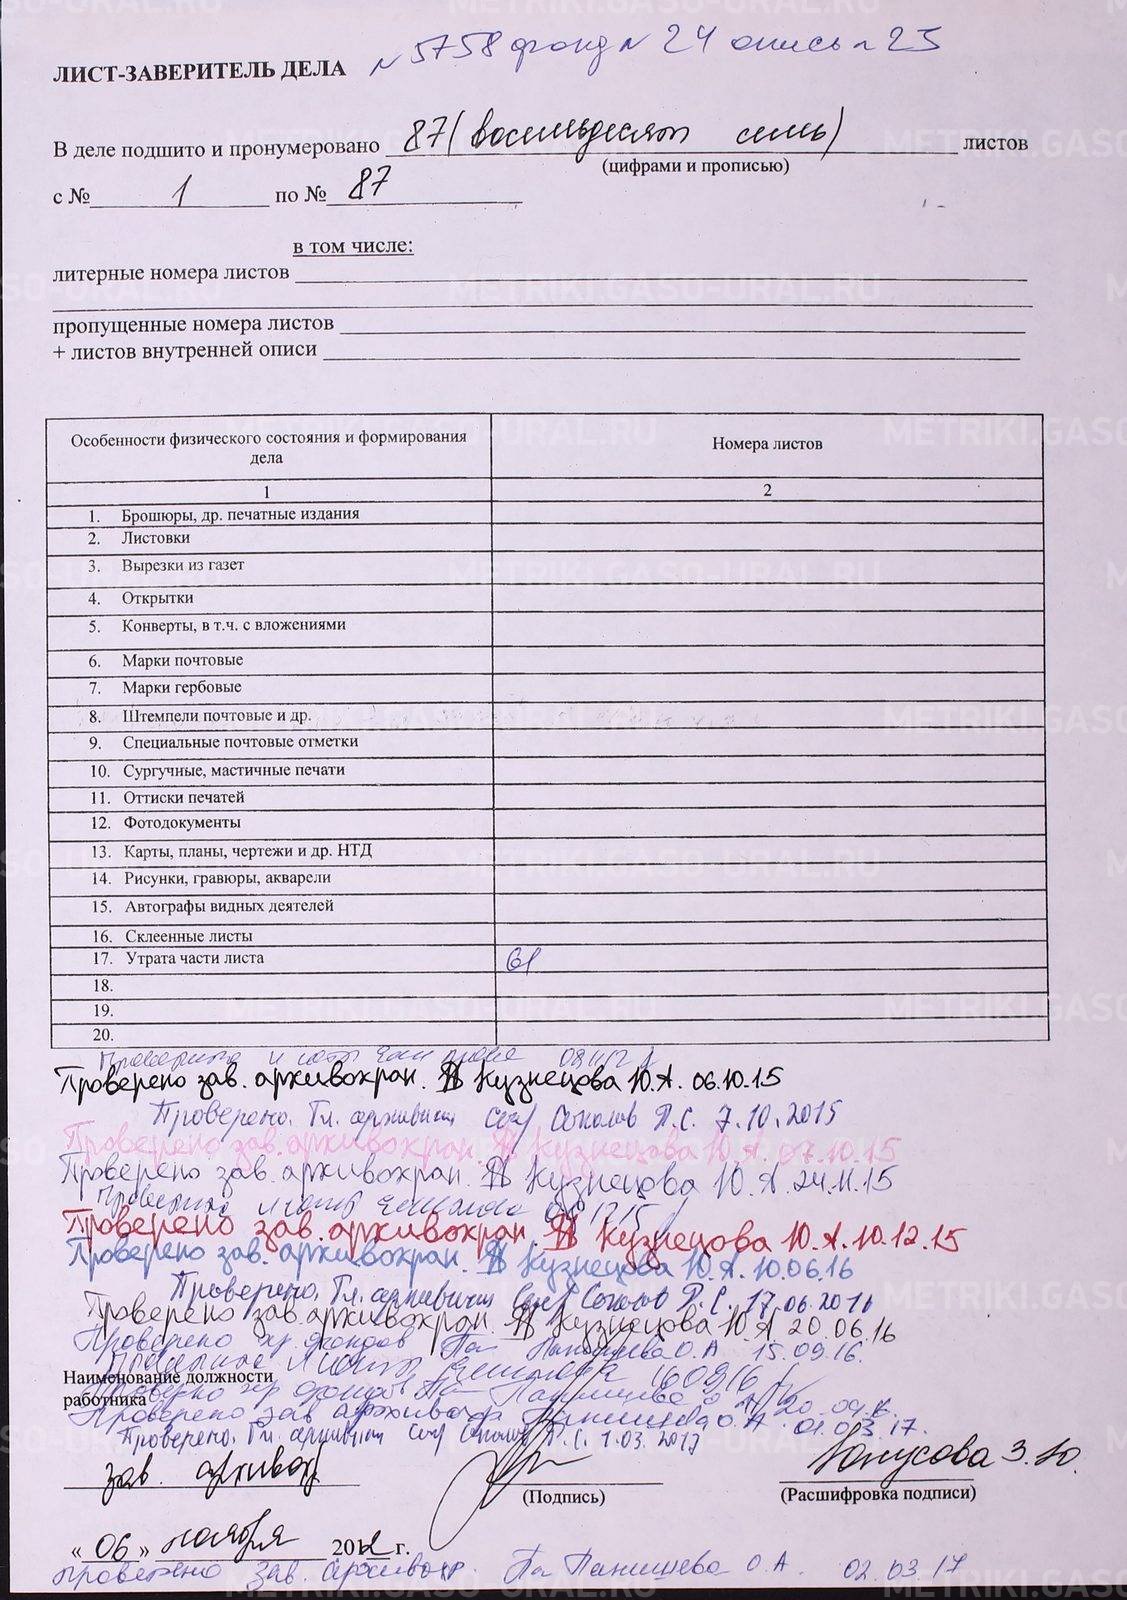 ЛИСТ-ЗАВЕРИТЕЛЬ ДЕЛА № 5758 фонд № 24 опись № 23
В деле подшито и пронумеровано 87 (восемьдесят семь) листов
(цифрами и прописью)
с № 1 по № 87
в том числе:
литерные номера листов
пропущенные номера листов
+ листов внутренней описи
Особенности физического состояния и формирования дела Номера листов
1 2
1. Брошюры, др. печатные издания
2. Листовки
3. Вырезки из газет
4. Открытки
5. Конверты, в т.ч. с вложениями
6. Марки почтовые
7. Марки гербовые
8. Штемпели почтовые и др.
9. Специальные почтовые отметки
10. Сургучные, мастичные печати
11. Оттиски печатей
12. Фотодокументы
13. Карты, планы, чертежи и др. НТД
14. Рисунки, гравюры, акварели
15. Автографы видных деятелей
16. Склеенные листы
17. Утрата части листа 61
18.
19.
20.
Проверено зав. архивохран. Кузнецова Ю.А. 06.10.15
Проверено. Гл. архивист Соколов П.С. 7.10.2015
Проверено зав. архивохран. Кузнецова Ю.А. 07.10.15
Проверено зав. архивохран. Кузнецова Ю.А. 24.11.15
Проверено зав. архивохран. Кузнецова Ю.А. 10.12.15
Проверено зав. архивохран. Кузнецова Ю.А. 10.06.16
Проверено. Гл. архивист Соколов П.С. 17.06.2016
Проверено зав. архивохран. Кузнецова Ю.А. 20.06.16
Проверено хр. фондов Панишева О.А 15.09.16.
Наименование должности
работника
Проверено хр. фондов Панишева
Проверено зав. архивохр Панишева О.А. 01.03.17.
Проверено. Гл. архивист Соколов П.С. 1.03.2017
зав. архивохр Юнусова З.Ю.
(Подпись) (Расшифровка подписи)
«06» ноября 2012 г.
проверено зав. архивохр. Панишева О.А. 02.03.17
METRIKI.GASO-URAL.RU